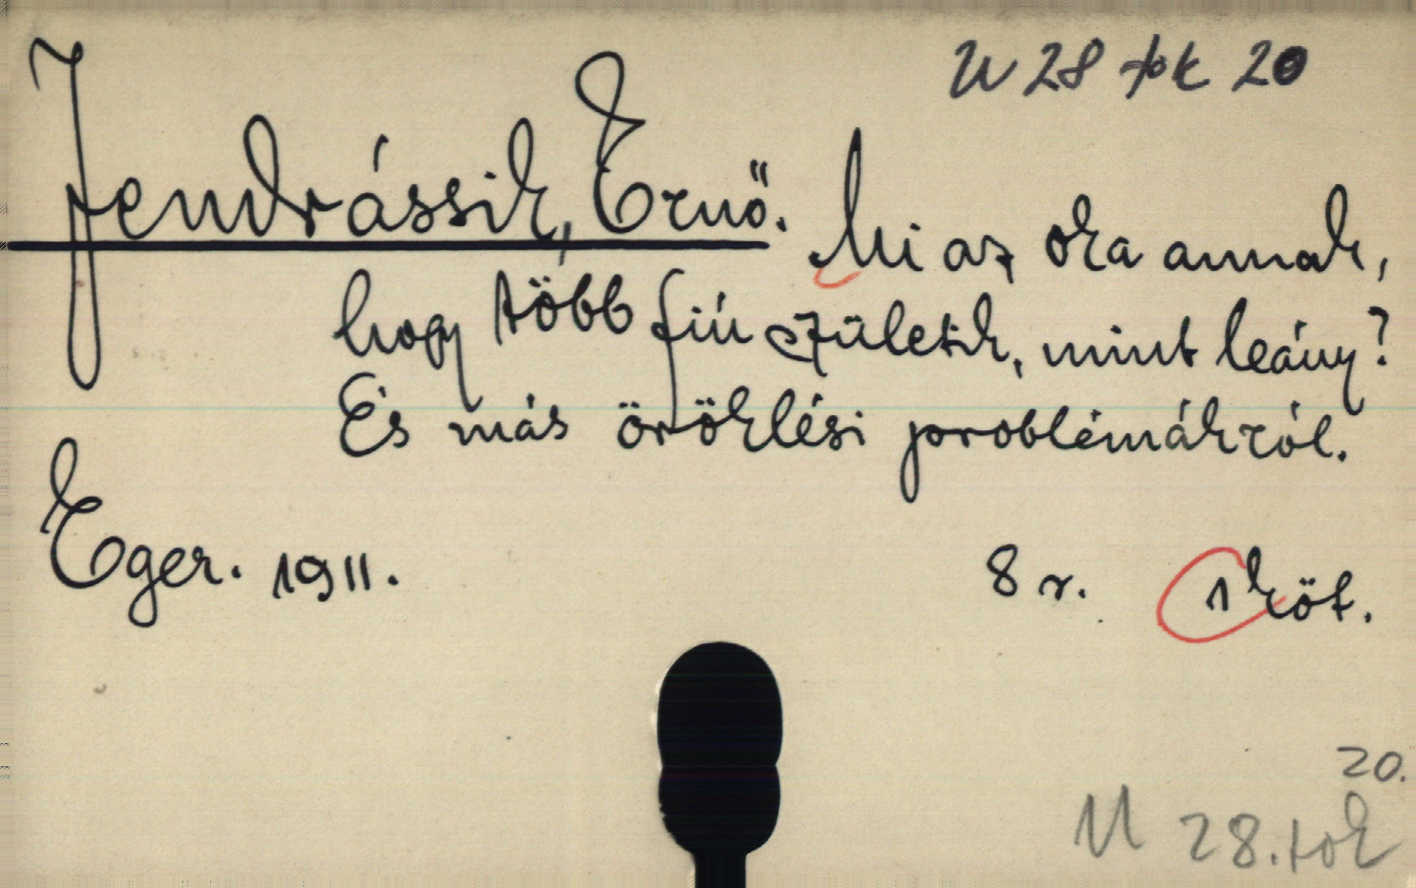 U 28 tok 20
Jendrássik, Ernő. Mi az oka annak,
hogy több fiú születik, mint leány?
És más öröklési problémákról.
Eger. 1911. 8 r. 1 köt.
20.
U 28. tok